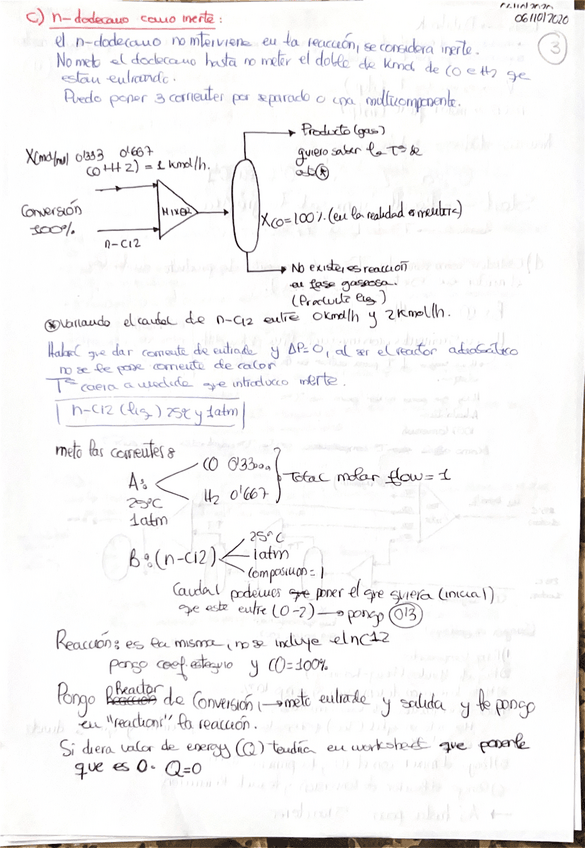 06/10/2020
06/10/2020
3
c) n-dodecano como inerte:
el n-dodecano no interviene en la reacción, se considera inerte.
No meto el dodecano hasta no meter el doble de kmol de CO e H2 que
están entrando.
Puedo poner 3 corrientes por separado o una multicomponente.
Producto (gas)
quiero saber la Tª de
X(mol/mol) 0'333 0'667
(CO+H2) = 1 kmol/h.
MIXER
Conversión
100%
n-C12
XCO=100% (en la realidad es mentira)
No existe, es reacción
en fase gaseosa.
(Producto líq)
Variando el caudal de n-C12 entre 0 kmol/h y 2 kmol/h.
Habrá que dar corriente de entrada y ΔP=0, al ser el reactor adiabático
no se le pone corriente de calor
Tª caerá a medida que introduzco inerte.
n-C12 (líq) 25ºC y 1atm
meto las corrientes:
A:
25ºC
1atm
CO 0'3300
H2 0'667
Total molar flow = 1
B: (n-C12)
25ºC
1atm
Composicion = 1
Caudal podemos que poner el que quiera (inicial)
que este entre (0-2) → pongo 0'3
Reacción: es la misma, no se incluye el nC12
pongo coef. estequio y CO=100%
Pongo Reactor de Conversión, → meto entrada y salida y le pongo
en "reaction" la reacción.
Si diera valor de energy (Q) tendría en worksheet que ponerle
que es 0. Q=0